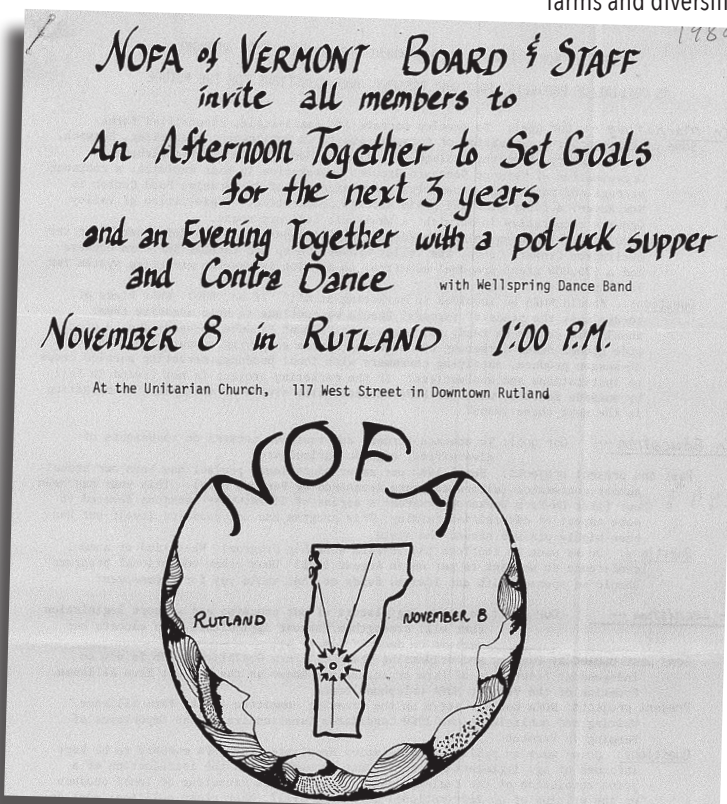 farms and
NOFA of VERMONT BOARD & STAFF
invite all members to
An Afternoon Together to Set Goals
for the next 3 years
and an Evening Together with a pot-luck supper
and Contra Dance with Wellspring Dance Band
NOVEMBER 8 in RUTLAND 1:00 P.M.
At the Unitarian Church, 117 West Street in Downtown Rutland
NOFA
RUTLAND
NOVEMBER 8